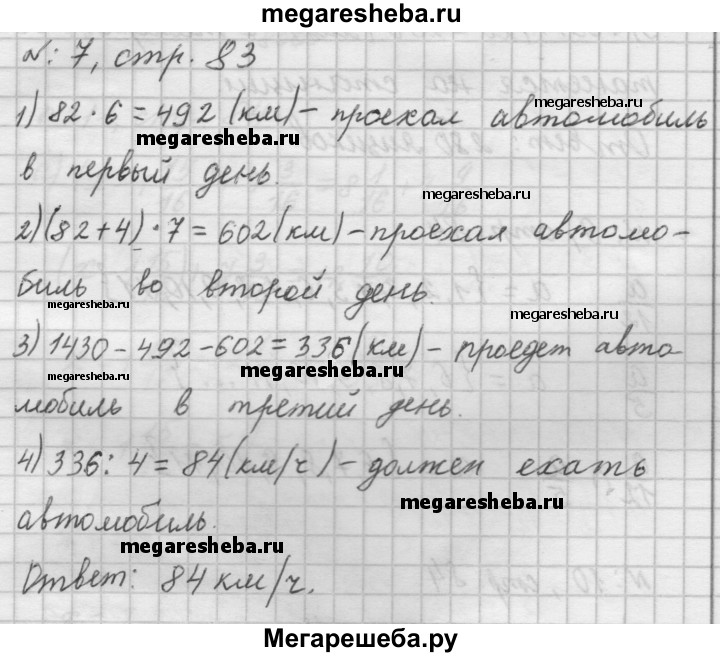 megaresheba.ru
№: 7, стр. 83
1) 82 · 6 = 492 (км) – проехал автомобиль
megaresheba.ru
megaresheba.ru
в первый день.
megaresheba.ru
2) (82+4) · 7 = 602 (км) – проехал автомо-
биль во второй день.
megaresheba.ru
megaresheba.ru
3) 1430 – 492 – 602 = 336 (км) – проедет авто
megaresheba.ru
megaresheba.ru
мобиль в третий день.
4) 336 : 4 = 84 (км/ч) – должен ехать
megaresheba.ru
автомобиль.
megaresheba.ru
Ответ: 84 км/ч.
Мегарешеба.ру